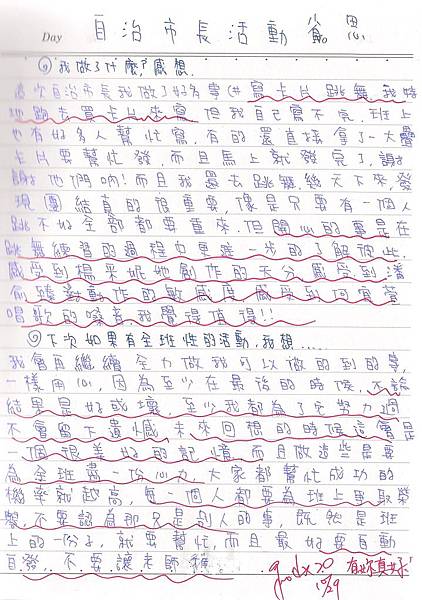 Day 自治市長活動省思
①我做了什麼?感想.
這次自治市長我做了好多事(井寫卡片跳舞,我特
地跑去買卡片來寫,但我自己寫不完,班上
也有好多人幫忙寫,有的還直接拿了一大疊
卡片要幫忙發,而且馬上就發完了,謝
謝他們唷!而且我還去跳舞,幾天下來,發
現團結真的很重要,像是只要有一個人
跳不好全部都要重來,但開心的事是在
跳舞練習的過程也更進一步的了解彼此.
感受到楊采妮她創作的天分,感受到潘
俞臻對動作的敏感度,感受到何宜萱
唱歌的嗓音,我覺得值得!!
②下次如果有全班性的活動,我想....
我會再繼續全力做我可以做的到的事,
一樣用心,因為至少在最後的時候,不論
結果是好或壞,至少我都為了它努力過
不會留下遺憾,未來回想的時候這會是
一個很美好的記憶,而且做這些是要
為全班盡一份心力,大家都幫忙成功的
機率就越高,每一個人都要為班上爭取榮
譽,不要認為那只是別人的事,既然是班
上的一份子,就要幫忙,而且最好要自動
自發,不要讓老師
good x20 有妳真好!
10/29